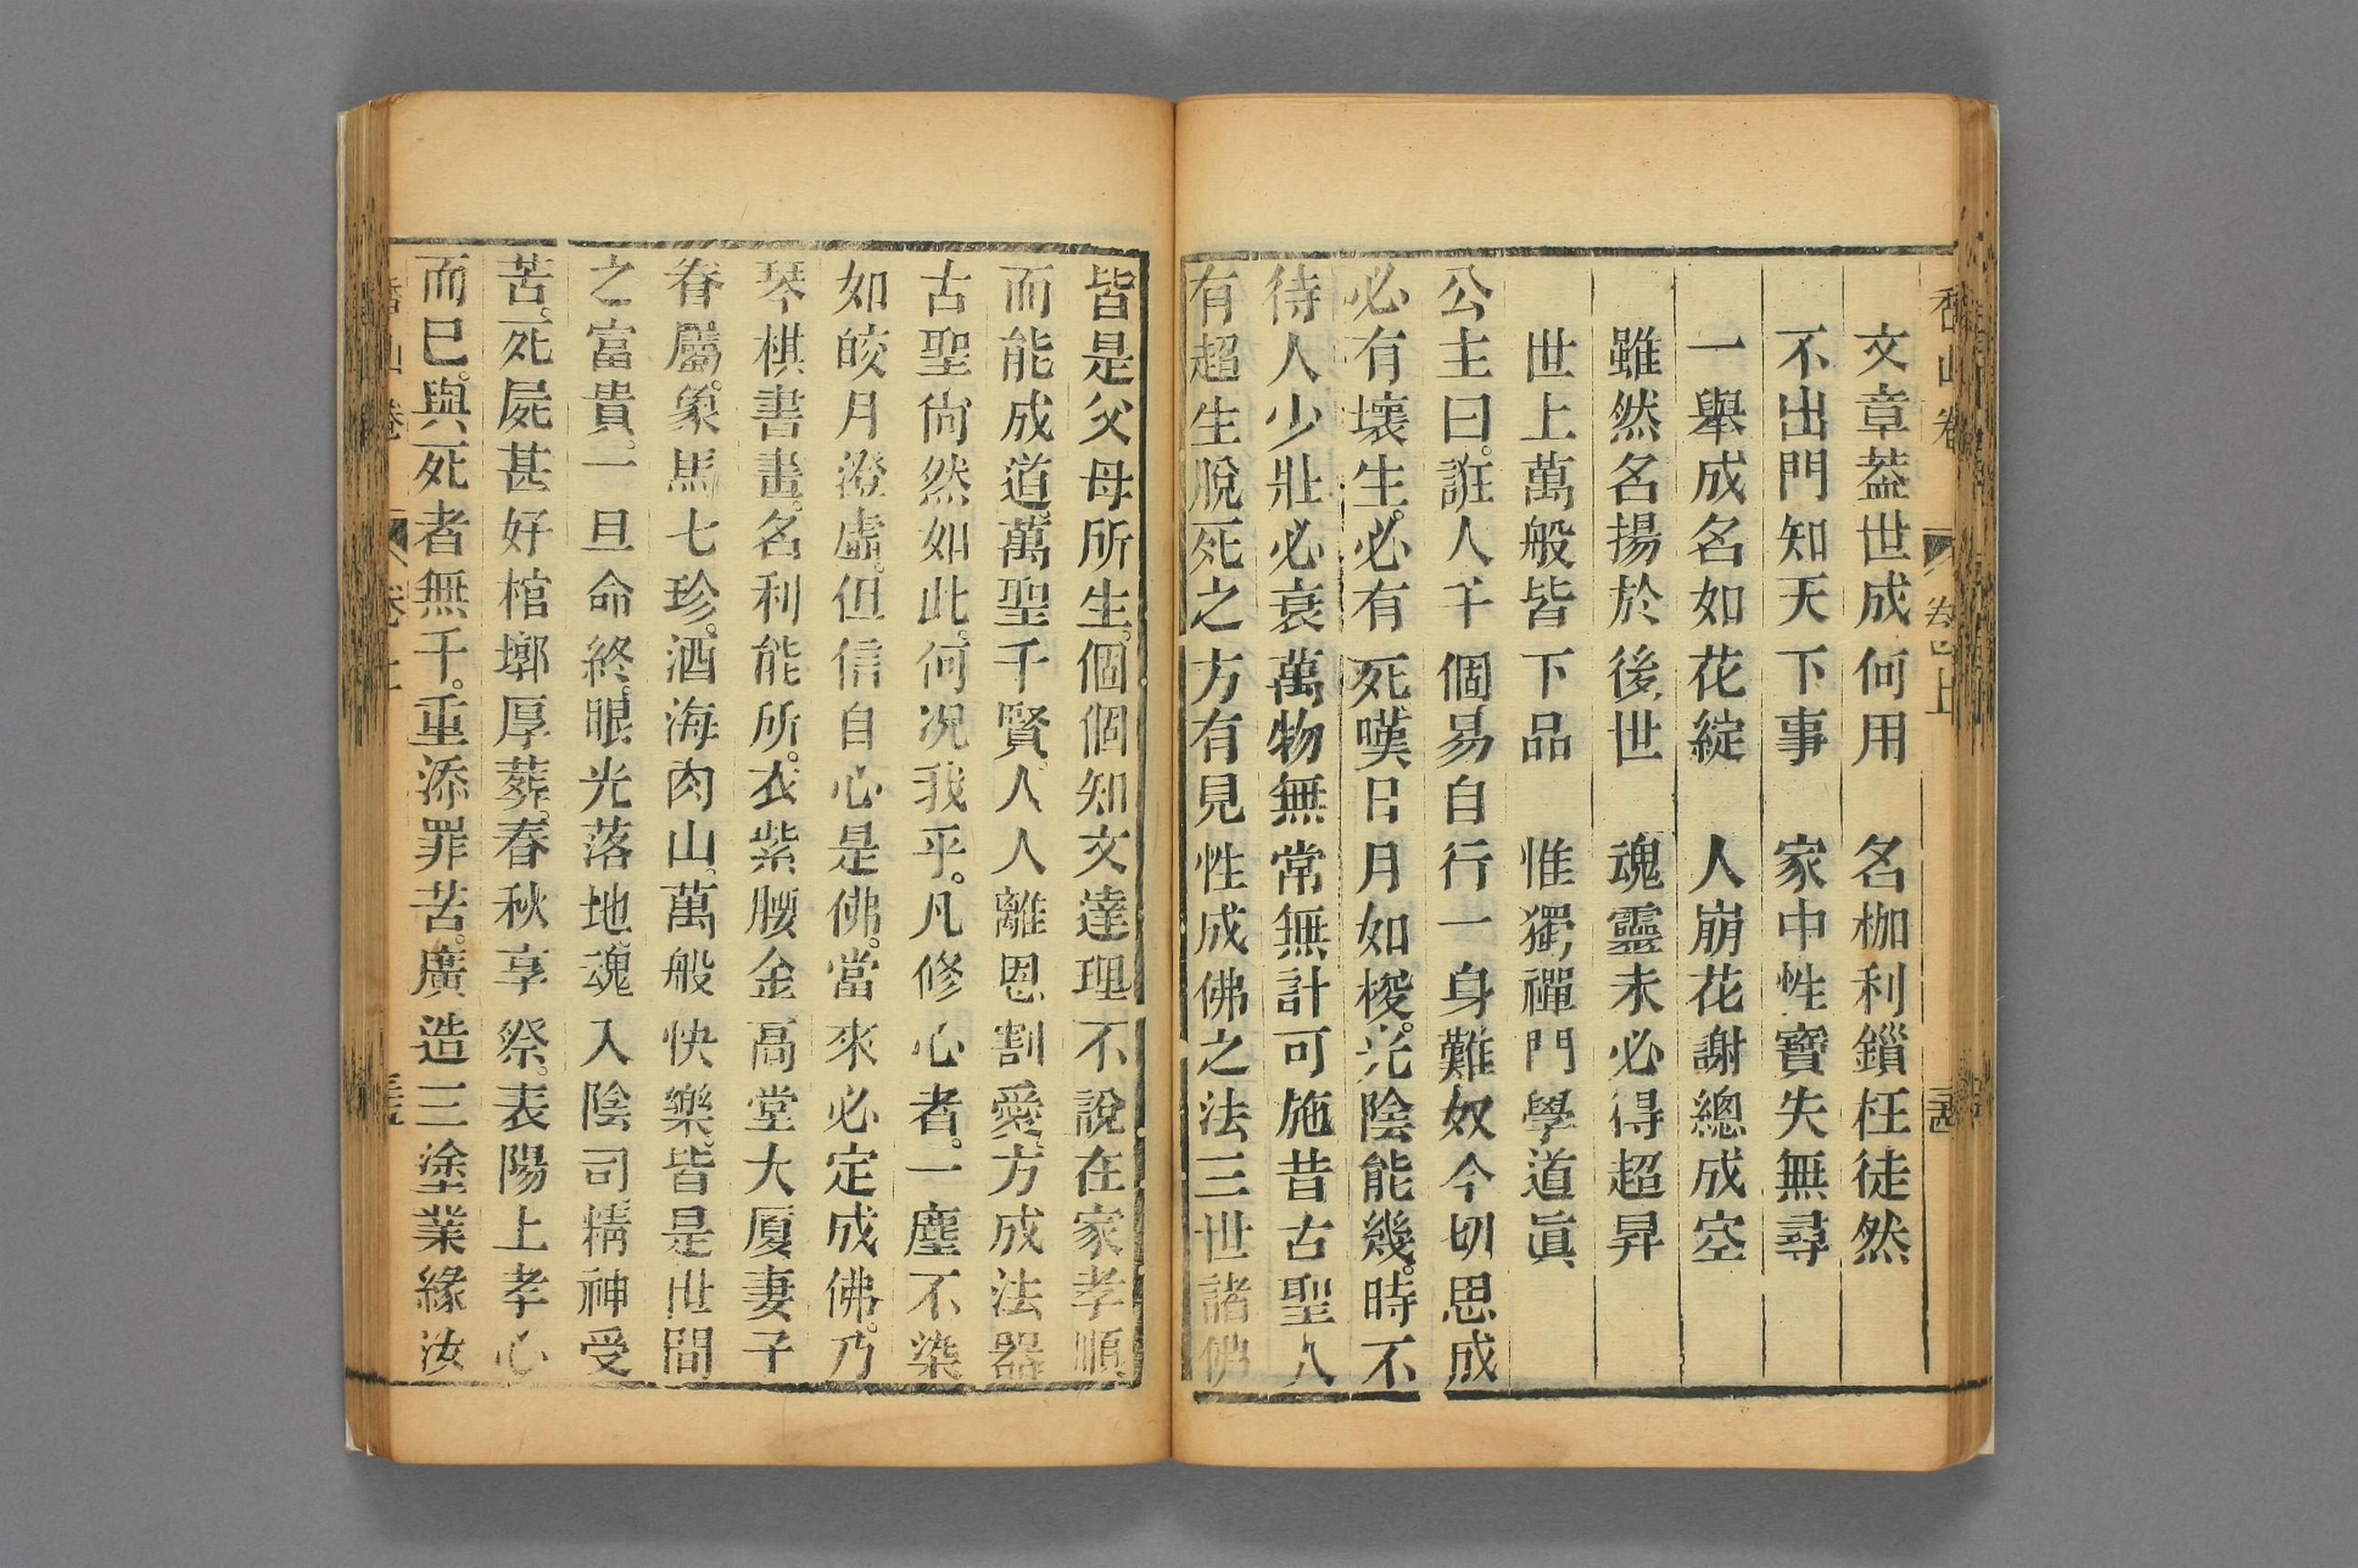 香山卷 卷上
文章蓋世成何用 名枷利鎖枉徒然
不出門知天下事 家中性寶失無尋
一舉成名如花綻 人崩花謝總成空
雖然名揚於後世 魂靈未必得超昇
世上萬般皆下品 惟獨禪門學道眞
公主曰。誑人千個易自行一身難奴今切思成
必有壞生。必有死嘆日月如梭。光陰能幾。時不
待人少壯必衰萬物無常無計可施昔古聖人
有超生脫死之方有見性成佛之法三世諸佛
皆是父母所生。個個知文達理不說在家孝順
而能成道。萬聖千賢人人離恩割愛。方成法器
古聖尙然如此。何况我乎。凡修心者。一塵不染
如皎月澄虛。但信自心是佛。當來必定成佛。乃
琴棋書畫。名利能所。衣紫腰金高堂大厦妻子
眷屬。象馬七珍。酒海肉山。萬般快樂。皆是世間
之富貴。一旦命終。眼光落地。魂入陰司精神受
苦。死屍甚好棺墎厚葬。春秋享祭。表陽上孝心
而巳。與死者無干。重添罪苦。廣造三塗業緣汝